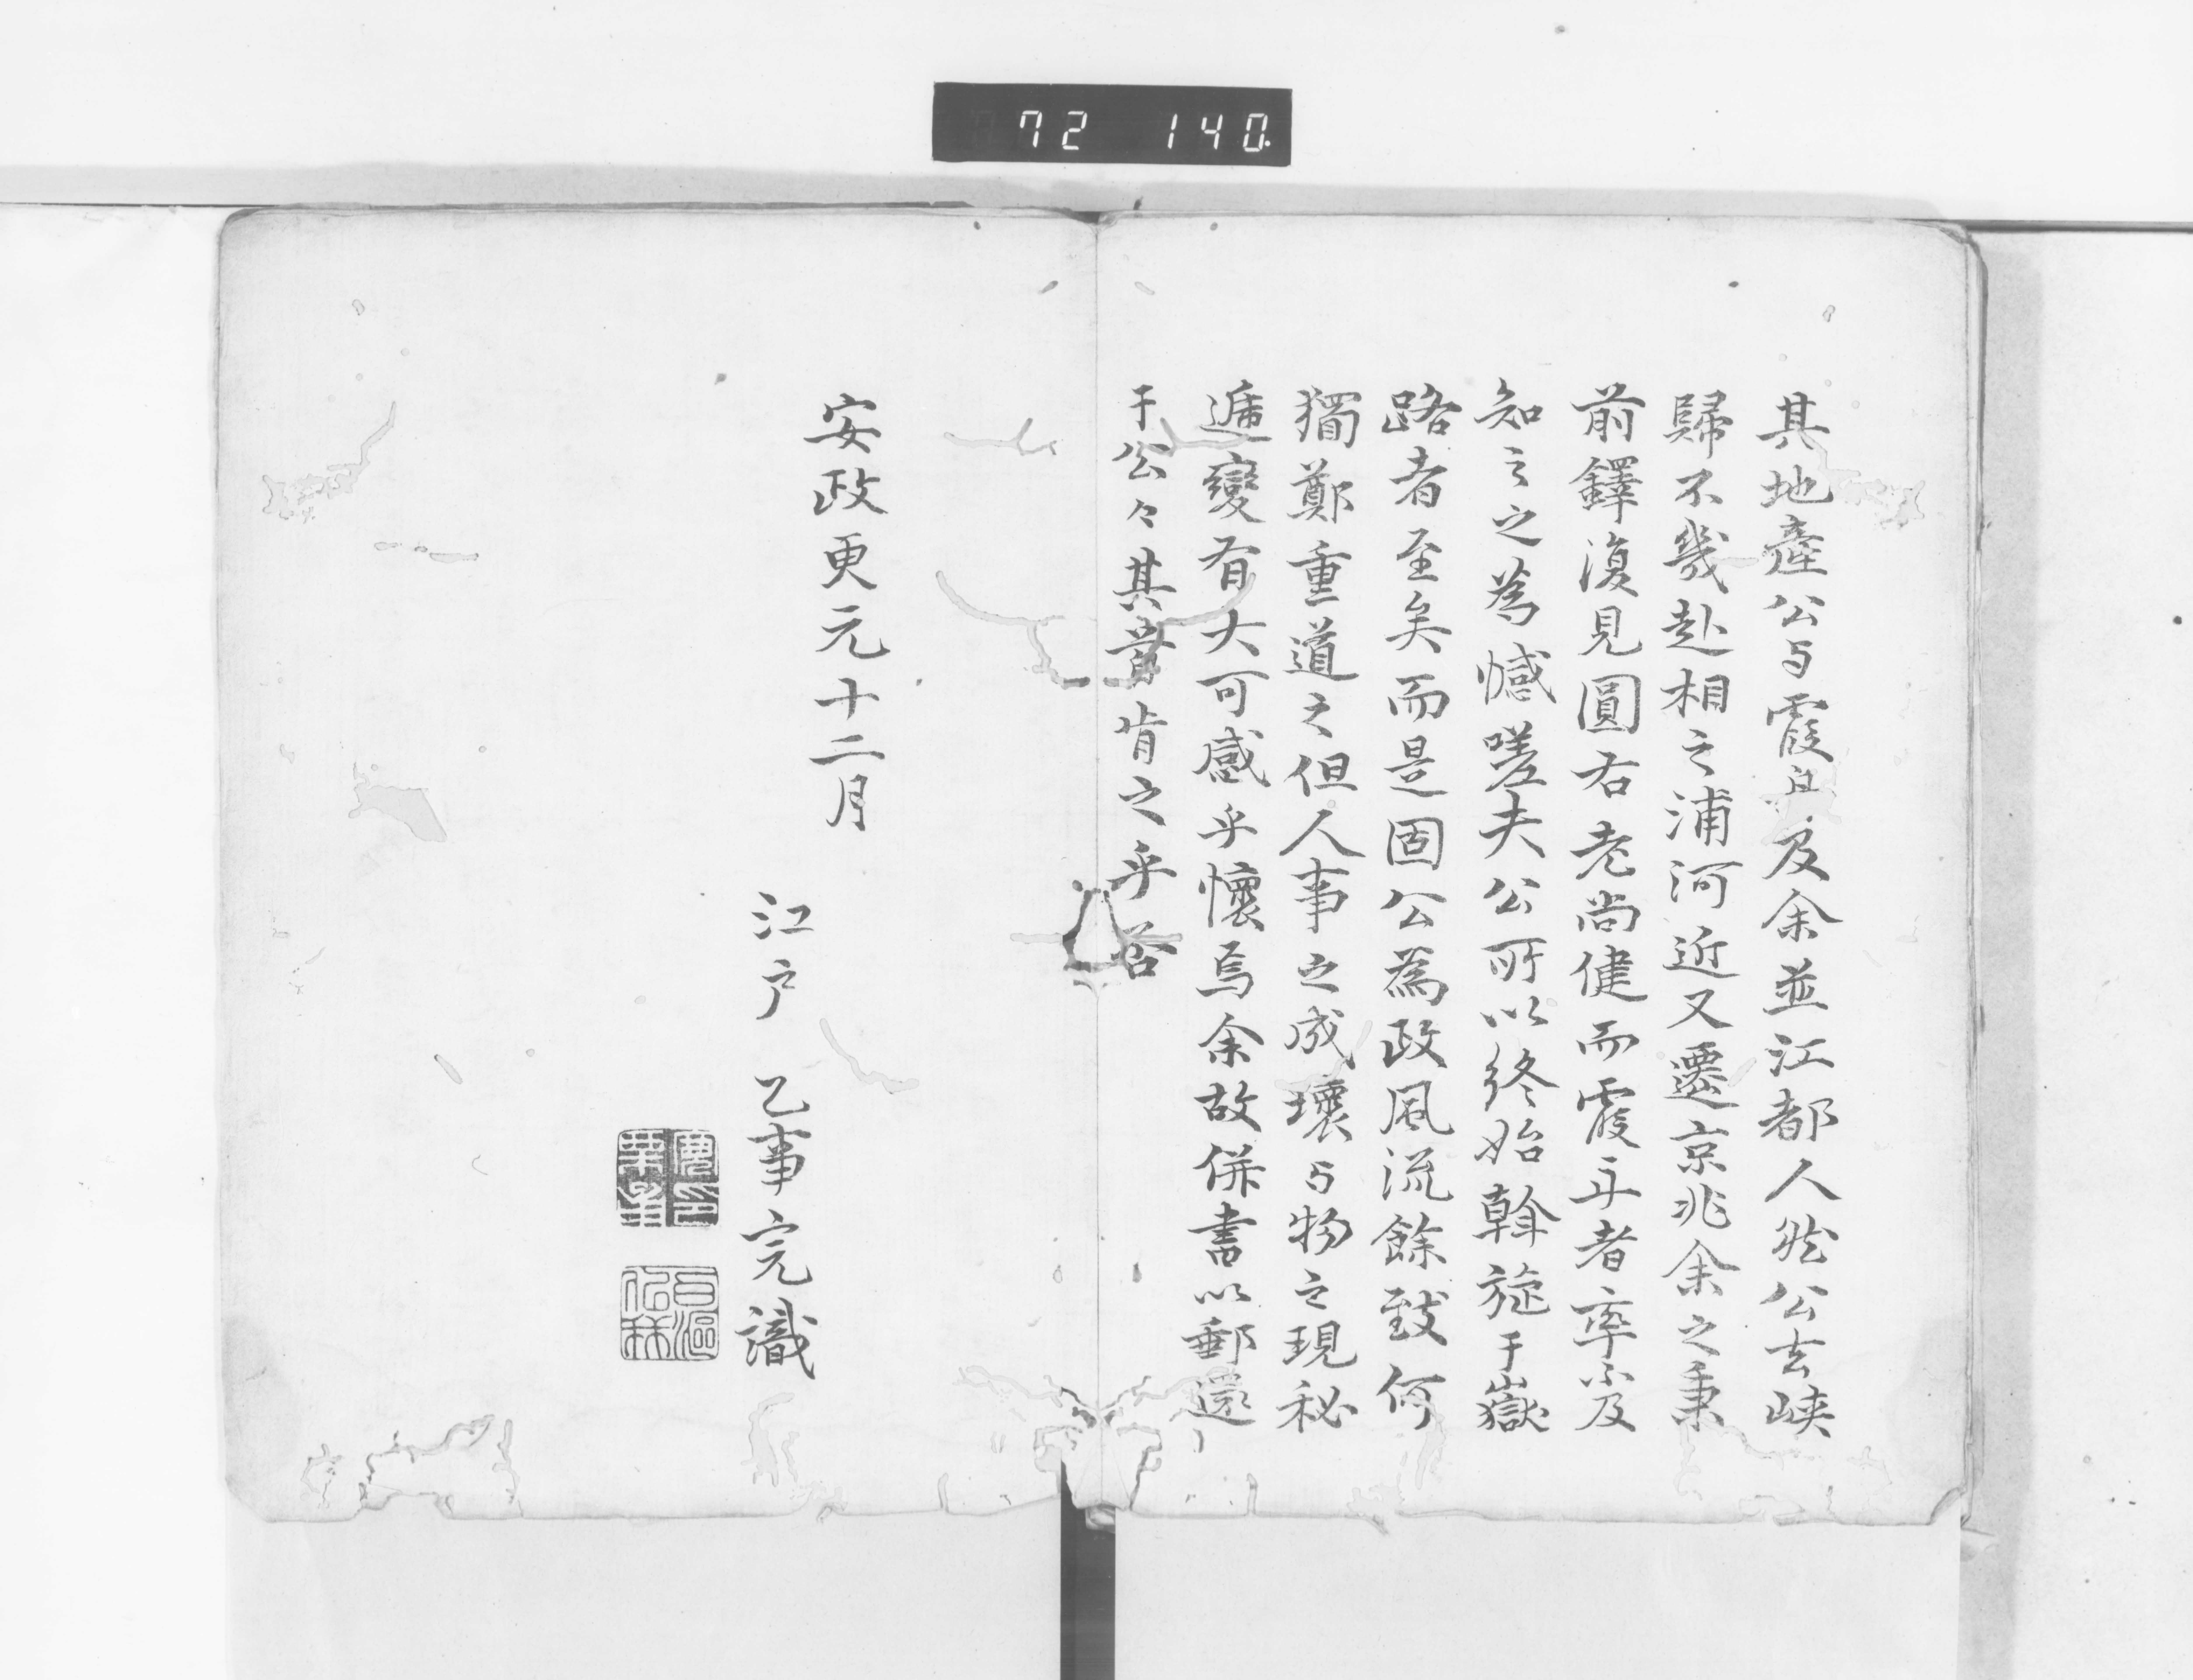 72 140.
其地産公与霞舟及余並江都人然公去峡
歸不幾赴相之浦河近又遷京兆余之秉
前鐸復見圓右老尚健而霞舟者率不及
知之之為憾嗟夫公所以終始斡旋于嶽
路者至矣而是固公為政風流餘致何
獨鄭重道之但人事之成壊与物之現秘
遞變有大可感乎懷焉余故併書以郵還
于公々其肯之乎否
安政更元十二月
江戸 乙事完識